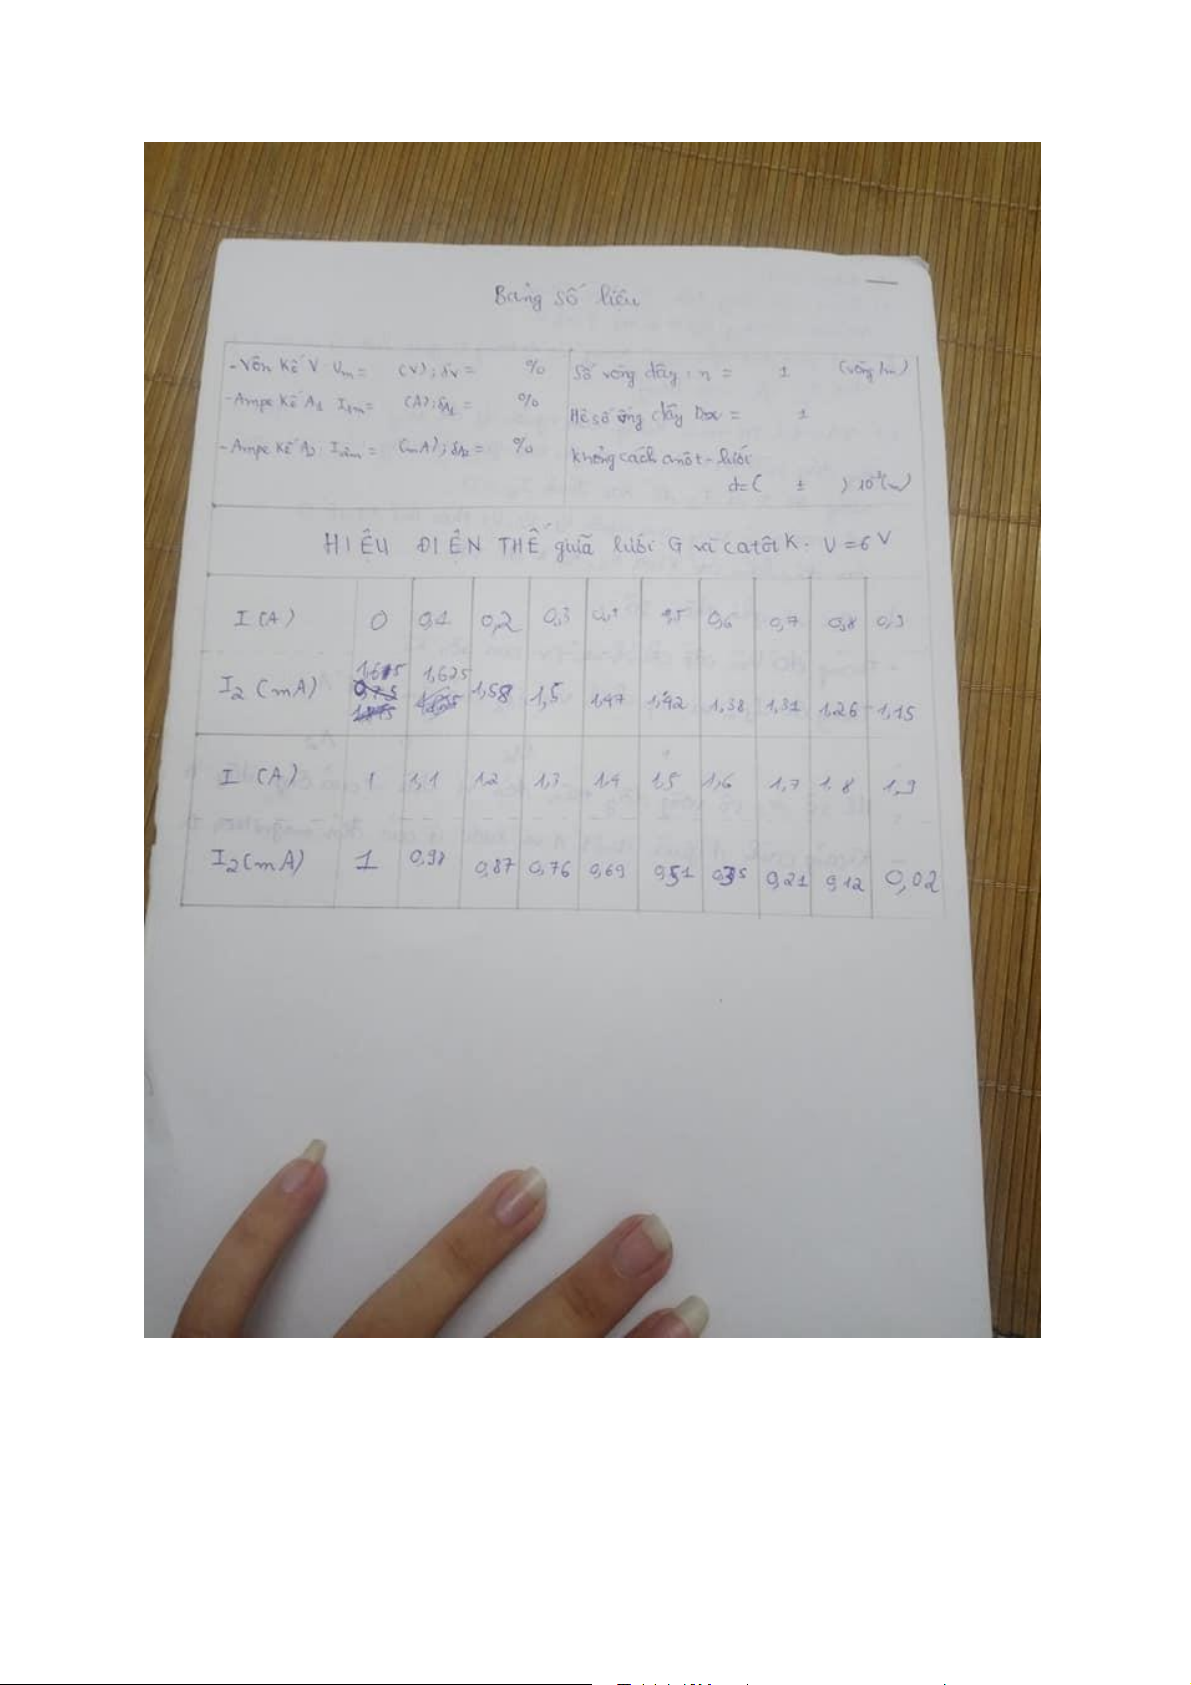 Bảng số liệu
-Vôn kế V Um= (V); δv= %
Số vòng dây: n = 1 (vòng/m)
-Ampe kế A1 I1m= (A); δA1 = %
Hệ số ống dây = 1
-Ampe kế A2 I2m = (mA); δA2 = %
Khoảng cách anôt-lưới
d=( ± ) 10⁻³(m)
HIỆU ĐIỆN THẾ giữa lưới G và catôt K. U=6 V
I (A) 0 0,1 0,2 0,3 0,5 0,6 0,7 0,8 0,9
I2 (mA) 1,625 1,58 1,5 1,47 1,42 1,38 1,31 1,26 1,15
I (A) 1 1,1 1,2 1,3 1,4 1,5 1,6 1,7 1,8 1,9
I2(mA) 1 0,98 0,87 0,76 0,69 0,51 0,35 0,21 0,12 0,02